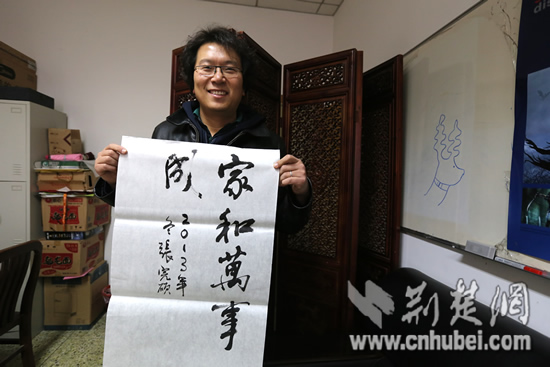 家和萬事
成
2013年
冬張
荆楚網
www.cnhubei.com